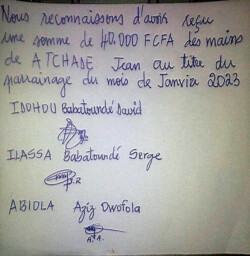 Nous reconnaissons d'avoir reçu
une somme de 40.000 FCFA des mains
de ATCHADE Jean au titre du
parrainage du mois de Janvier 2023
IDOHOU Babatoundé David
ILASSA Babatoundé Serge
ABIOLA Aziz Dwofola
A.A.